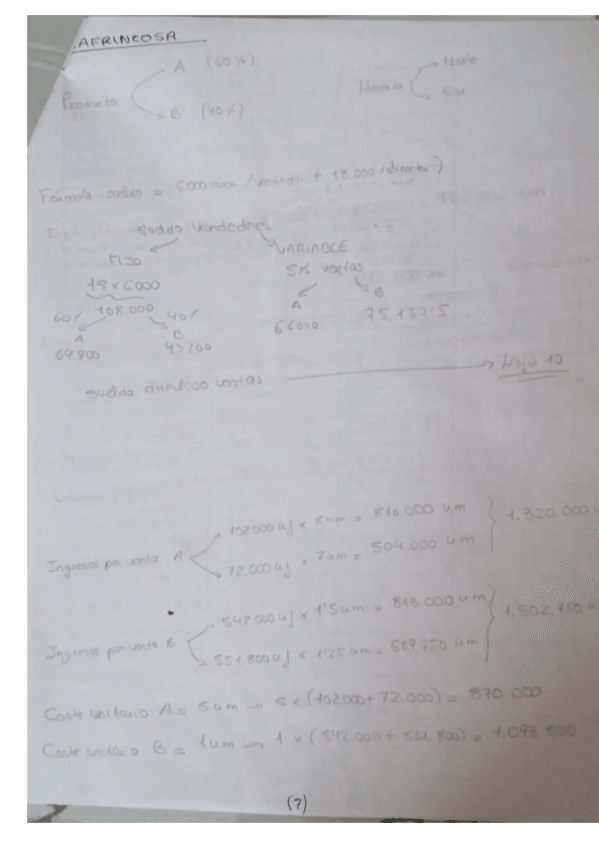 AFRINCOSA
A (60%)
Producto
B (40%)
Norte
Sur
Fórmula sueldo = 6000 / vendedor + 18.000 /director)
sueldo vendedores
FIJO
VARIABLE
5% ventas
18 x 6000
108.000
60% 40%
A
64.800
B
43200
A
66000
B
75.137'5
sueldo directivo ventas → Hoja 10
Ingresos por venta A
102000 uf x 8um = 816000 um
72.000 uf x 7um = 504.000 um
1.320.000
Ingresos por venta B
542000 uf x 1'5um = 813.000 um
551.800 uf x 1'25um = 689750 um
1.502.750
Coste unitario A = 5um → 5 x (102000 + 72.000) = 870 000
Coste unitario B = 1um → 1 x (542.000 + 551.800) = 1.093.800
(7)